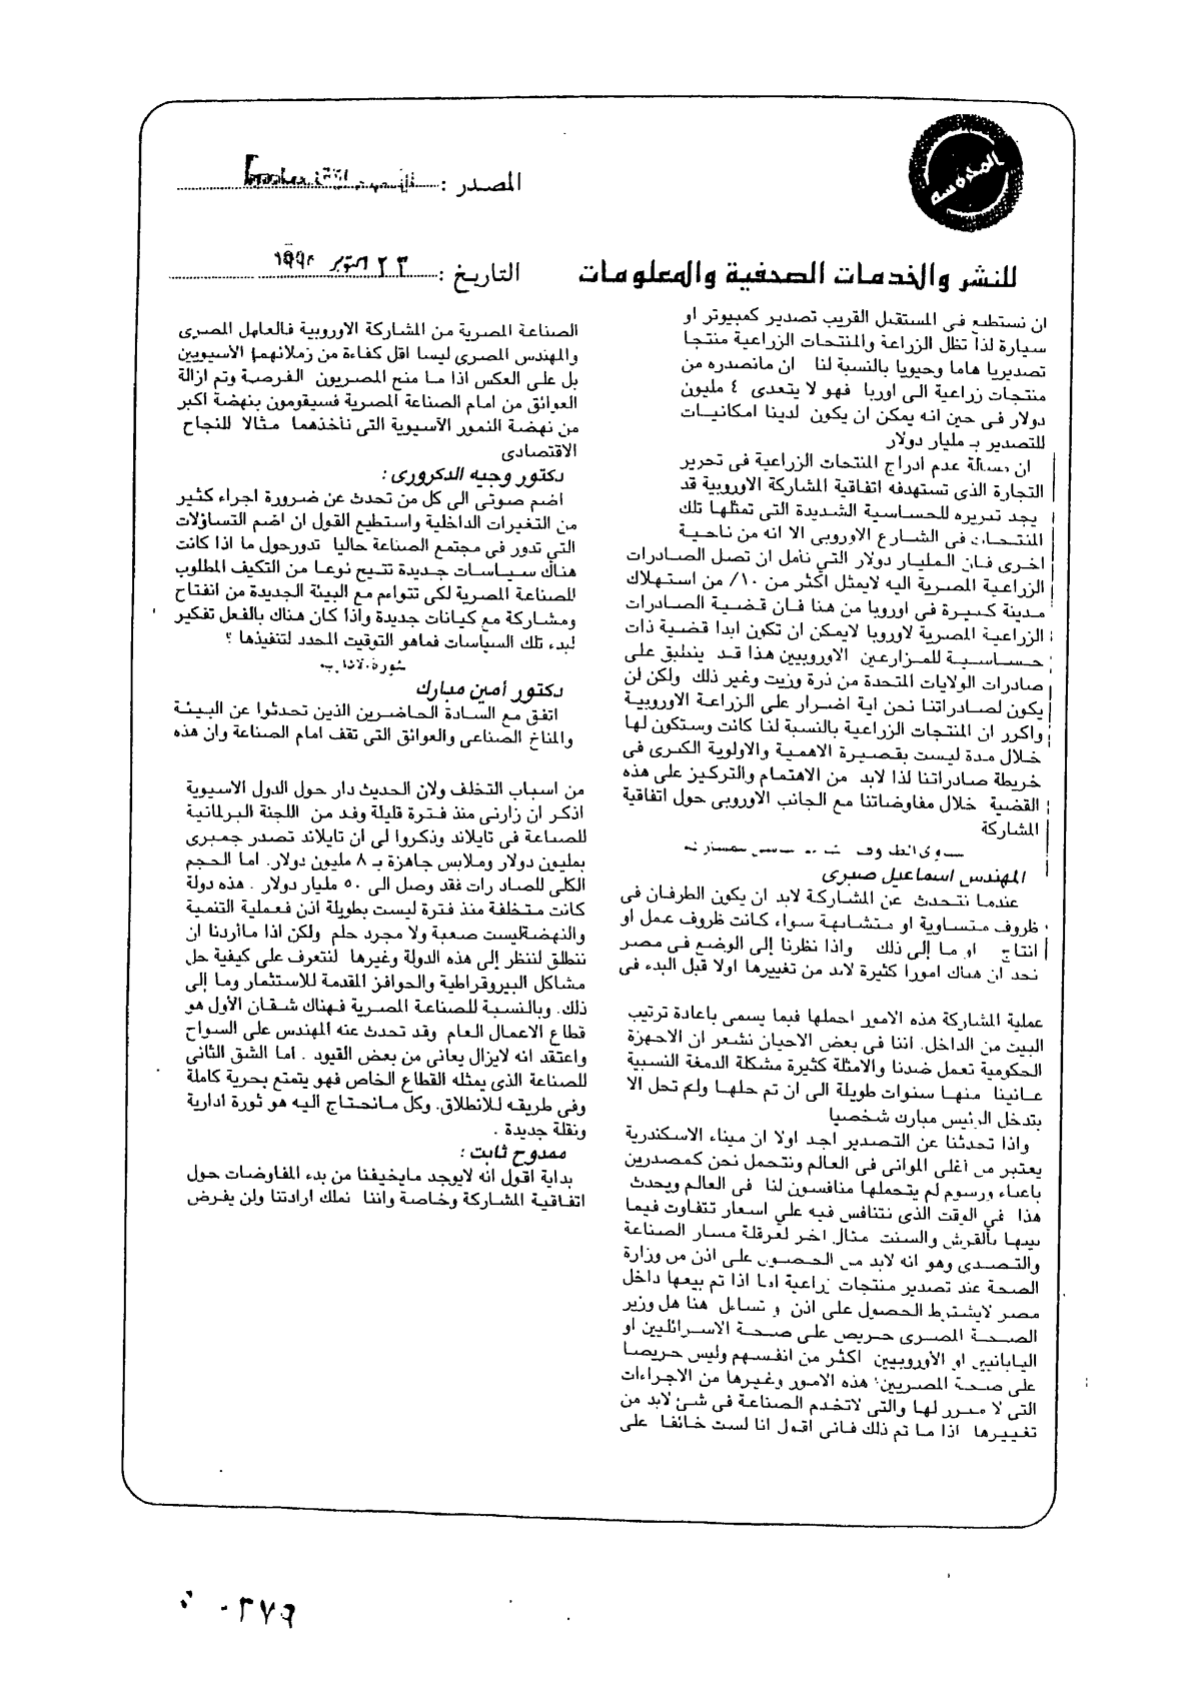 المحروسه
المصدر :
للنشر والخدمات الصحفية والمعلومات
التاريخ : ٢٣ اكتوبر ١٩٩٥
ان نستطيع فى المستقبل القريب تصدير كمبيوتر او
سيارة لذا تظل الزراعة والمنتجات الزراعية منتجا
تصديريا هاما وحيويا بالنسبة لنا ان مانصدره من
منتجات زراعية الى اوربا فهو لا يتعدى ٤ مليون
دولار فى حين انه يمكن ان يكون لدينا امكانيات
للتصدير بـ مليار دولار
ان مسالة عدم ادراج المنتجات الزراعية فى تحرير
التجارة الذى تستهدفه اتفاقية المشاركة الاوروبية قد
يجد تبريره للحساسية الشديدة التى تمثلها تلك
المنتجات فى الشارع الاوروبى الا انه من ناحية
اخرى فان المليار دولار التي نأمل ان تصل الصادرات
الزراعية المصرية اليه لايمثل أكثر من ١٠٪ من استهلاك
مدينة كبيرة فى اوروبا من هنا فان قضية الصادرات
الزراعية المصرية لاوروبا لايمكن ان تكون ابدا قضية ذات
حساسية للمزارعين الاوروبيين هذا قد ينطبق على
صادرات الولايات المتحدة من ذرة وزيت وغير ذلك ولكن لن
يكون لصادراتنا نحن اية اضرار على الزراعة الاوروبية
واكرر ان المنتجات الزراعية بالنسبة لنا كانت وستكون لها
خلال مدة ليست بقصيرة الاهمية والاولوية الكبرى فى
خريطة صادراتنا لذا لابد من الاهتمام والتركيز على هذه
القضية خلال مفاوضاتنا مع الجانب الاوروبى حول اتفاقية
المشاركة
المهندس اسماعيل صبرى
عندما نتحدث عن المشاركة لابد ان يكون الطرفان فى
ظروف متساوية او متشابهة سواء كانت ظروف عمل او
انتاج او ما إلى ذلك واذا نظرنا إلى الوضع فى مصر
نجد ان هناك امورا كثيرة لابد من تغييرها اولا قبل البدء فى
عملية المشاركة هذه الامور احملها فيما يسمى باعادة ترتيب
البيت من الداخل. اننا فى بعض الاحيان نشعر ان الاجهزة
الحكومية تعمل ضدنا والامثلة كثيرة مشكلة الدمغة النسبية
عانينا منها سنوات طويلة الى ان تم حلها ولم تحل الا
بتدخل الرئيس مبارك شخصيا
واذا تحدثنا عن التصدير اجد اولا ان ميناء الاسكندرية
يعتبر من أغلى الموانى فى العالم ونتحمل نحن كمصدرين
باعباء ورسوم لم يتحملها منافسون لنا فى العالم ويحدث
هذا في الوقت الذى نتنافس فيه على اسعار تتفاوت فيما
بينها بالقرش والسنت مثال اخر لعرقلة مسار الصناعة
والتصدى وهو انه لابد من الحصول على اذن من وزارة
الصحة عند تصدير منتجات زراعية اما اذا تم بيعها داخل
مصر لايشترط الحصول على اذن و تساءل هنا هل وزير
الصحة المصرى حريص على صحة الاسرائليين او
اليابانيين او الأوروبيين اكثر من انفسهم وليس حريصا
على صحة المصريين؛ هذه الامور وغيرها من الاجراءات
التى لا مبرر لها والتى لاتخدم الصناعة فى شئ لابد من
تغييرها اذا ما تم ذلك فانى اقول انا لست خائفا على
الصناعة المصرية من المشاركة الاوروبية فالعامل المصرى
والمهندس المصرى ليسا اقل كفاءة من زملائهما الأسيويين
بل على العكس اذا ما منح المصريون الفرصة وتم ازالة
العوائق من امام الصناعة المصرية فسيقومون بنهضة اكبر
من نهضة النمور الآسيوية التى نأخذهما مثالا للنجاح
الاقتصادى
دكتور وجيه الدكرورى :
اضم صوتى الى كل من تحدث عن ضرورة اجراء كثير
من التغيرات الداخلية واستطيع القول ان اضم التساؤلات
التي تدور فى مجتمع الصناعة حاليا تدورحول ما اذا كانت
هناك سياسات جديدة تتيح نوعا من التكيف المطلوب
للصناعة المصرية لكى تتواءم مع البيئة الجديدة من انفتاح
ومشاركة مع كيانات جديدة واذا كان هناك بالفعل تفكير
لبدء تلك السياسات فماهو التوقيت المحدد لتنفيذها ؟
دكتور أمين مبارك
اتفق مع السادة الحاضرين الذين تحدثوا عن البيئة
والمناخ الصناعى والعوائق التى تقف امام الصناعة وان هذه
من اسباب التخلف ولان الحديث دار حول الدول الاسيوية
اذكر ان زارنى منذ فترة قليلة وفد من اللجنة البرلمانية
للصناعة فى تايلاند وذكروا لى ان تايلاند تصدر جمبرى
بمليون دولار وملابس جاهزة بـ ٨ مليون دولار. اما الحجم
الكلى للصادرات فقد وصل الى ٥٠ مليار دولار . هذه دولة
كانت متخلفة منذ فترة ليست بطويلة اذن فعملية التنمية
والنهضةليست صعبة ولا مجرد حلم ولكن اذا مااردنا ان
ننطلق لننظر إلى هذه الدولة وغيرها لنتعرف على كيفية حل
مشاكل البيروقراطية والحوافز المقدمة للاستثمار وما إلى
ذلك. وبالنسبة للصناعة المصرية فهناك شقان الأول هو
قطاع الاعمال العام وقد تحدث عنه المهندس على السواح
واعتقد انه لايزال يعانى من بعض القيود . اما الشق الثانى
للصناعة الذى يمثله القطاع الخاص فهو يتمتع بحرية كاملة
وفى طريقه للانطلاق. وكل مانحتاج اليه هو ثورة ادارية
ونقلة جديدة .
ممدوح ثابت :
بداية اقول انه لايوجد مايخيفنا من بدء المفاوضات حول
اتفاقية المشاركة وخاصة واننا نملك ارادتنا ولن يفرض